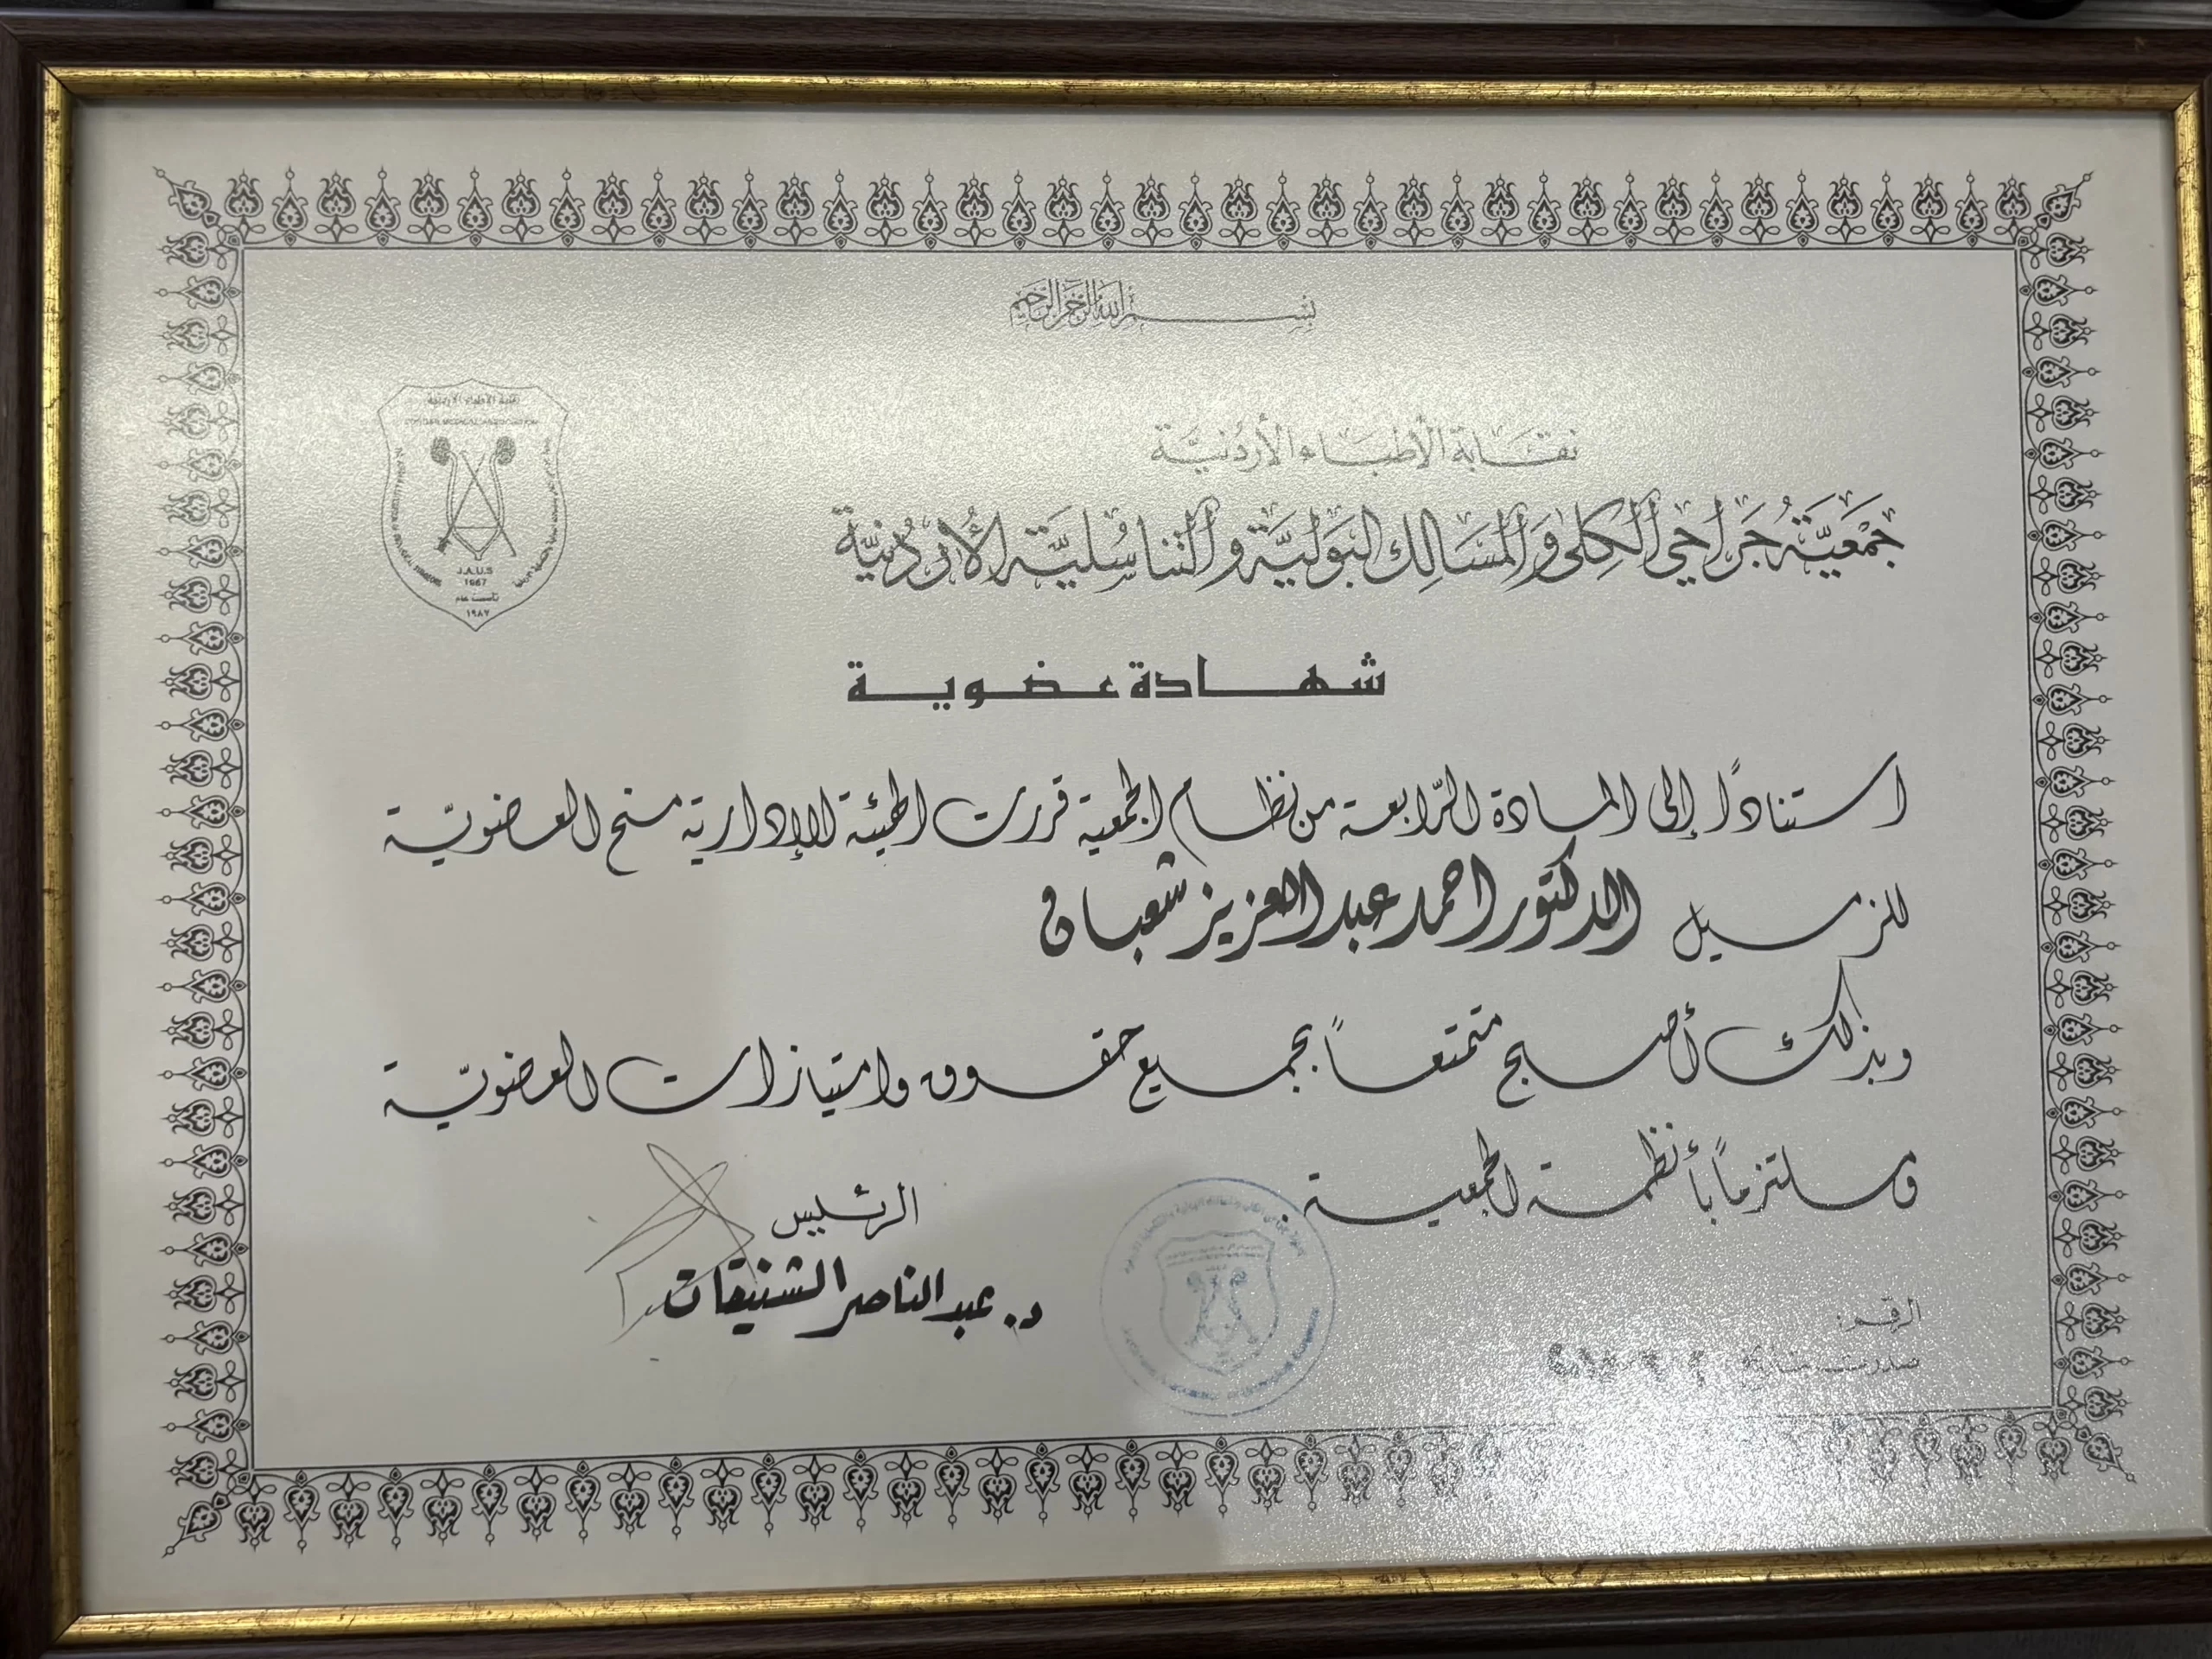 بسم الله الرحمن الرحيم
نقابة الأطباء الأردنية
جمعية جراحي الكلى والمسالك البولية والتناسلية الأردنية
نقابة الأطباء الأردنية
J.A.U.S
1987
تأسست عام
١٩٨٧
شهادة عضوية
استنادًا إلى المادة الرّابعة من نظام الجمعية قررت الهيئة الإدارية منح العضويّة
للزميل الدكتور احمد عبد العزيز شعبان
وبذلك أصبح متمتعاً بجميع حقوق وامتيازات العضويّة
وملتزماً بأنظمة الجمعية
الرئيس
د. عبد الناصر الشنيقات
الرقم:
صدرت بتاريخ